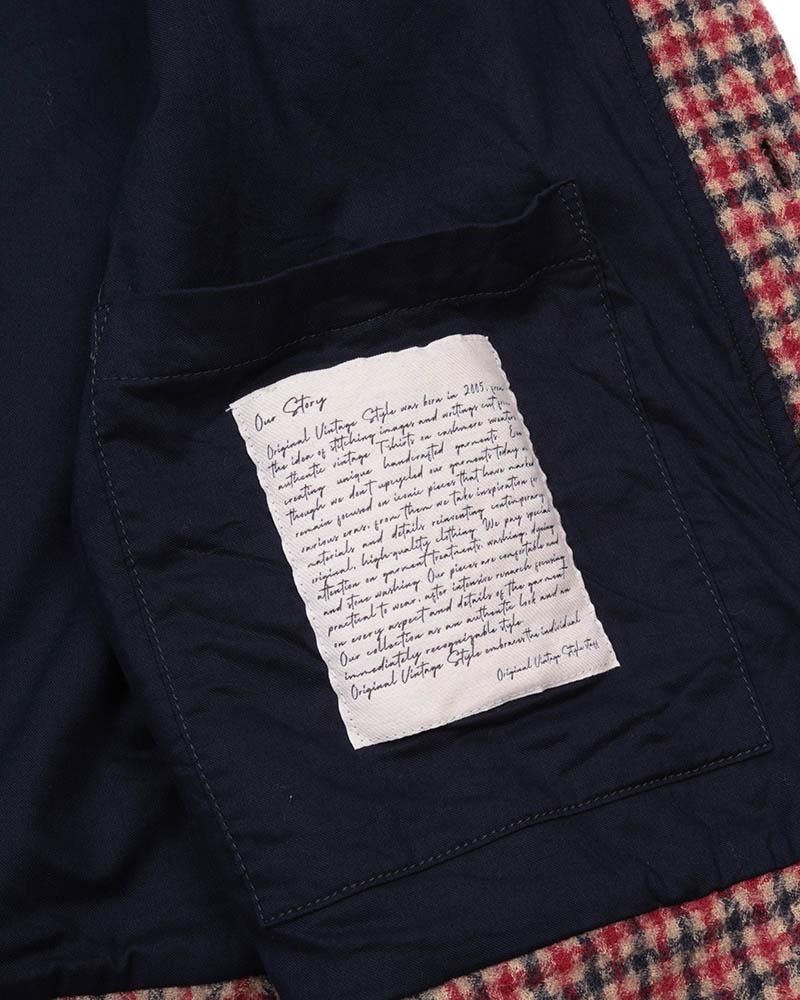 Our Story
Original Vintage Style was born in 2005, from
the idea of stitching images and writings cut from
authentic vintage T-shirts on cashmere sweaters
creating unique handcrafted garments. Even
though we don't upcycled our garments today
remain focused on iconic pieces that have marked
various eras, from them we take inspiration
materials and details reinventing contemporary
original, high-quality clothing. We pay special
attention on garment treatments, washing, dyeing
and stone washing. Our pieces are comfortable and
practical to wear, after intensive research focusing
on every aspect and details of the garment
Our collection as an authentic look and an
immediately recognizable style.
Original Vintage Style embraces the individual
Original Vintage Style staff